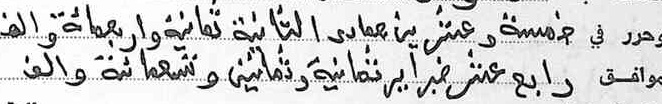 وحرر في خمسة وعشرين جمادى الثانية ثمانية واربعمائة والف
موافق رابع عشر فبراير ثمانية وثمانين وتسعمائة والف